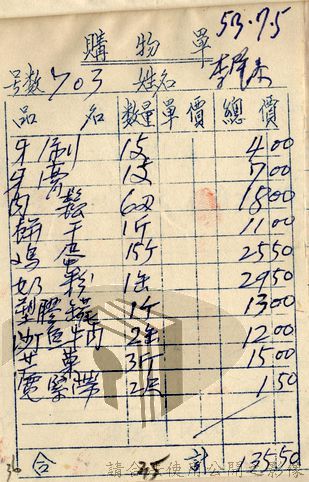 53.7.5
購物單
号數 703 姓名 李
品名 數量 單價 總價
牙刷 1支 400
牙膏 1支 700
肉鬆 6 1800
餅干 1斤 1100
15斤 2550
奶粉 1缶 2950
塑膠 1个 1300
沙 2缶 1200
3斤 1500
寬緊帶 2 150
合計 13550
36
35
請合 使用公開之影像